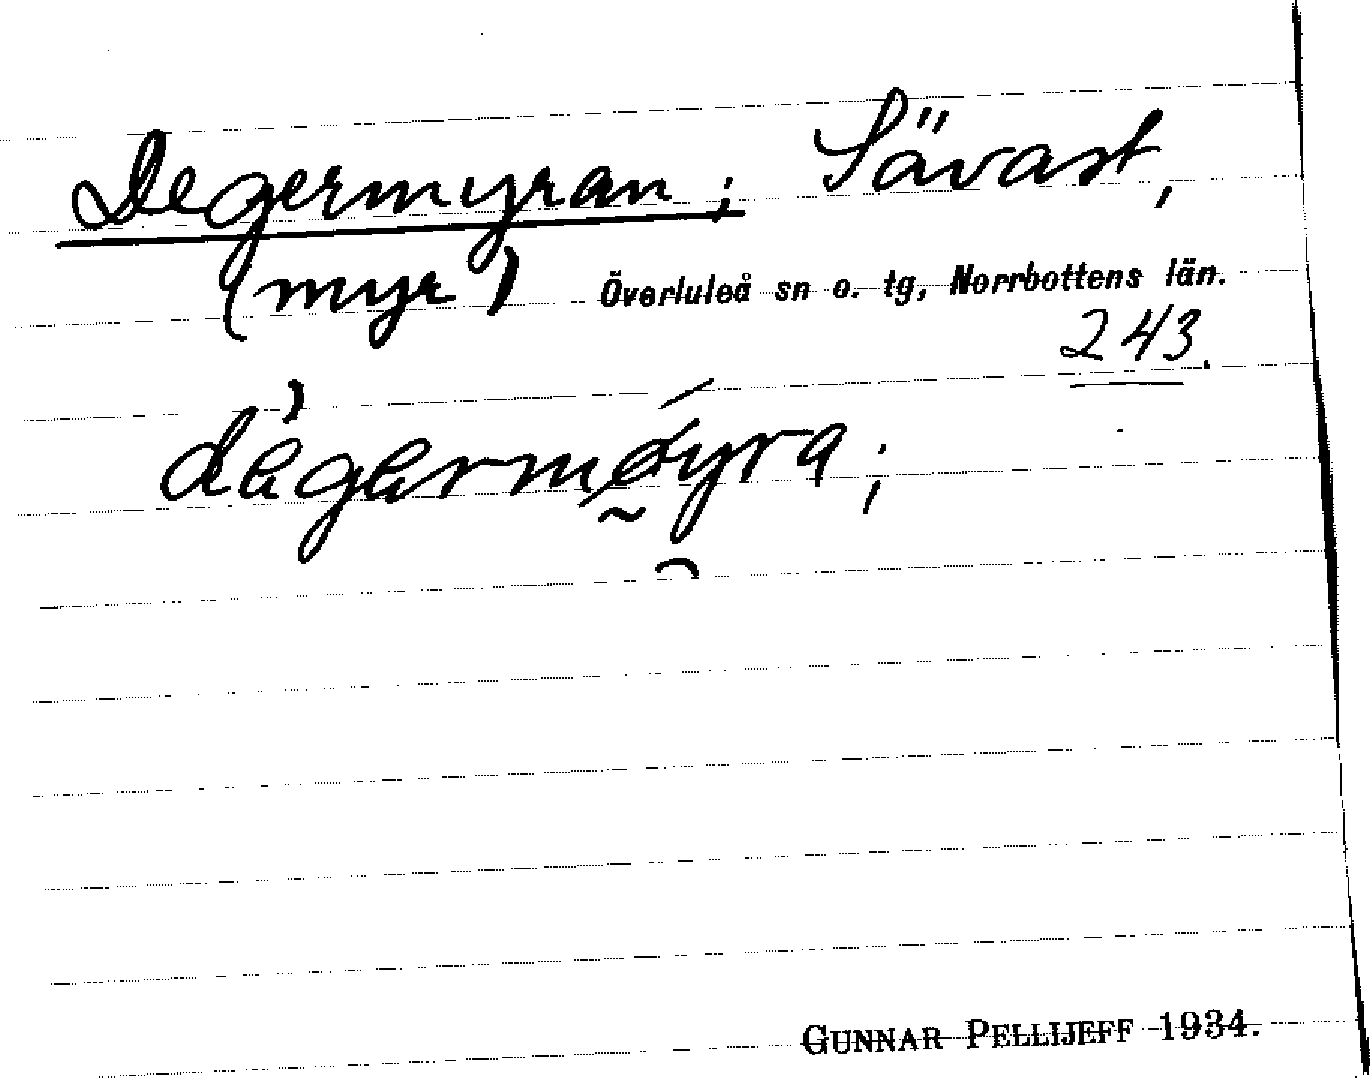 Degermyran; Sävast,
(myr) Överluleå sn o. tg, Norrbottens län.
243.
dègərmǿyra;
GUNNAR PELLIJEFF 1934.